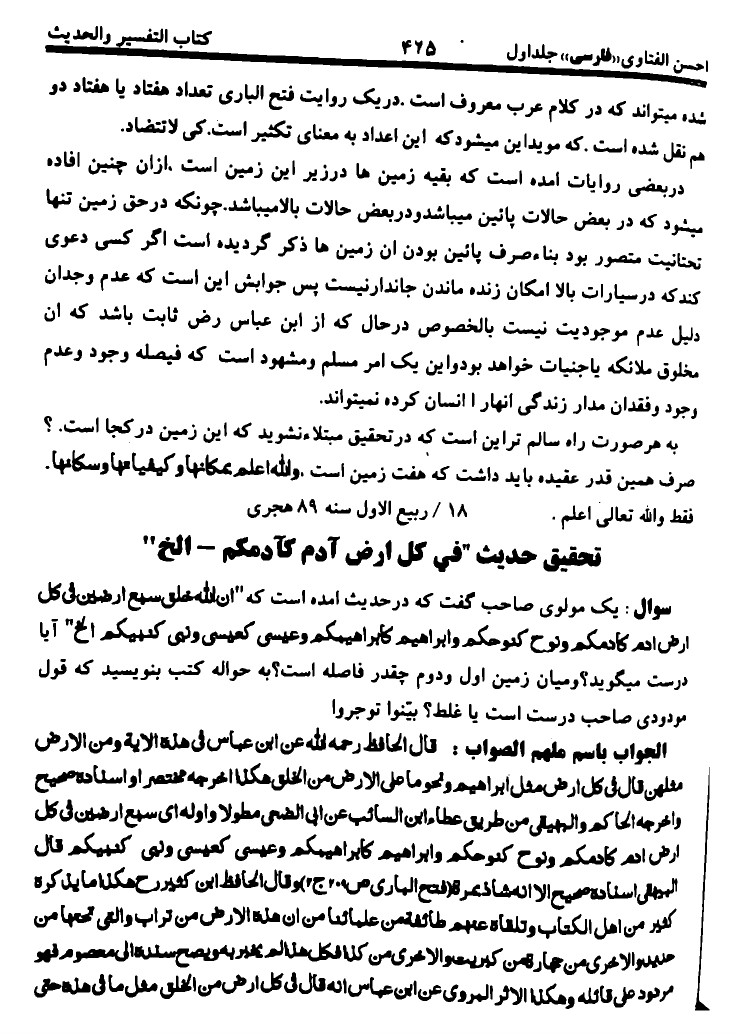 احسن الفتاوی «فارسی» جلد اول ۴۶۵ کتاب التفسیر والحدیث
شده میتواند که در کلام عرب معروف است .دریک روایت فتح الباری تعداد هفتاد یا هفتاد دو
هم نقل شده است .که مویداین میشودکه این اعداد به معنای تکثیر است.کی لاتتضاد.
دربعضی روایات امده است که بقیه زمین ها درزیر این زمین است ،ازان چنین افاده
میشود که در بعض حالات پائین میباشدودربعض حالات بالامیباشد.چونکه درحق زمین تنها
تحتانیت متصور بود بناءصرف پائین بودن ان زمین ها ذکر گردیده است اگر کسی دعوی
کندکه درسیارات بالا امکان زنده ماندن جاندارنیست پس جوابش این است که عدم وجدان
دلیل عدم موجودیت نیست بالخصوص درحال که از ابن عباس رض ثابت باشد که ان
مخلوق ملائکه یاجنیات خواهد بودواین یک امر مسلم ومشهود است که فیصله وجود وعدم
وجود وفقدان مدار زندگی انهار ا انسان کرده نمیتواند.
به هرصورت راه سالم تراین است که درتحقیق مبتلاءنشوید که این زمین درکجا است. ؟
صرف همین قدر عقیده باید داشت که هفت زمین است .والله اعلم بمکانها و کیفیاتها وسکانها.
فقط والله تعالی اعلم . ۱۸ / ربیع الاول سنه ۸۹ هجری
تحقیق حدیث "في كل ارض آدم كآدمكم – الخ"
سوال : یک مولوی صاحب گفت که درحدیث امده است که "ان الله خلق سبع ارضین فی کل
ارض ادم کادمکم ونوح کنوحکم وابراهیم کابراهیمکم وعیسی کعیسی ونبی کنبیکم الخ" آیا
درست میگوید؟ومیان زمین اول ودوم چقدر فاصله است؟به حواله کتب بنویسید که قول
مودودی صاحب درست است یا غلط؟ بیّنوا توجروا
الجواب باسم ملهم الصواب : قال الحافظ رحمه الله عن ابن عباس فی هذه الایة ومن الارض
مثلهن قال فی کل ارض مثل ابراهیم ونحو ما علی الارض من الخلق هکذا اخرجه مختصرا واسناده صحیح
واخرجه الحاکم والبیهقی من طریق عطاء ابن السائب عن ابی الضحی مطولا واوله ای سبع ارضین فی کل
ارض ادم کادمکم ونوح کنوحکم وابراهیم کابراهیمکم وعیسی کعیسی ونبی کنبیکم قال
البیهقی اسناده صحیح الا انه شاذ بمرة(فتح الباری ص۲۰۹ ج۶)وقال الحافظ ابن کثیر رح هکذا ما یذکره
کثیر من اهل الکتاب وتلقاه عنهم طائفة من علمائنا من ان هذه الارض من تراب والتی تحتها من
حدید والاخری من حجارة من کبریت والاخری من کذا فکل هذا لم یخبر به ویصح سنده الی معصوم فهو
مردود علی قائله وهکذا الاثر المروی عن ابن عباس انه قال فی کل ارض من الخلق مثل ما فی هذه حتی